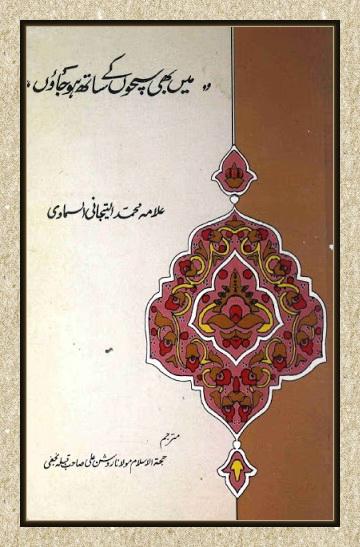 ” میں بھی سچوں کے ساتھ ہو جاؤں “
علامہ محمد التیجانی السماوی
مترجم
حجۃ الاسلام مولانا روشن علی صاحب قبلہ نجفی